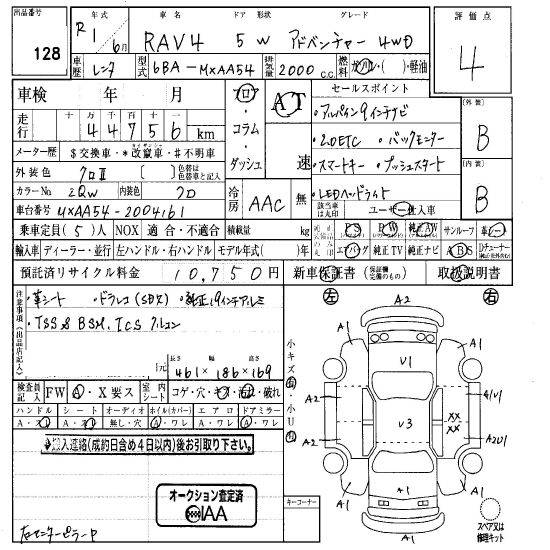 出品番号
128
年式
車名
ドア 形状
グレード
R1 6月
RAV4
5 W
アドベンチャー 4WD
車歴
レンタ
型式
6BA-MXAA54
排気量
2000 c.c.
燃料
ガソリン・( )・軽油
評価点
4
車検 年 月
走行
十 万 千 百 十 一
44756 km
メーター歴
$交換車・*改竄車・#不明車
外装色
クロⅡ
色替は色替車と記入
カラーNo
2QW
内装色
クロ
車台番号
MXAA54-2004161
ロ・コラム・ダッシュ
AT
速
冷房
AAC
無
セールスポイント
・アルパイン9インチナビ
・2.0ETC ・バックモニター
・スマートキー ・プッシュスタート
・LEDヘッドライト
ユーザー仕入車
外装
B
内装
B
乗車定員(5)人
NOX
適合・不適合
積載量
kg
PS
PW
純正AW
サンルーフ
革シート
輸入車
ディーラー・並行
左ハンドル・右ハンドル
モデル年式( )年
エアバッグ
純正TV
純正ナビ
ABS
預託済リサイクル料金
10,750円
新車保証書
取扱説明書
注意事項(出品店記入)
・革シート ・ドラレコ(SD欠) ・純正19インチアルミ
・TSS&BSM.ICS
長さ 幅 高さ
461×186×169
検査員記入
FW
A・X要ス
室内シート
コゲ・穴・キズ・汚れ・破れ
ハンドル
シート
オーディオ
ホイル(カバー)
エアロ
ドアミラー
A・ス
A・ス
無し・穴
A・ワレ
A・ワレ
A・ワレ
搬入連絡(成約日含め4日以内)後お引取り下さい。
オークション査定済
IAA
右センターピラーP
キーコーナー
小キズ
左
右
A2
A1
A1
V1
A2
4/U1
V3
XX
XX
A2
A2U1
A1
A1
A1
スペア又は修理キット